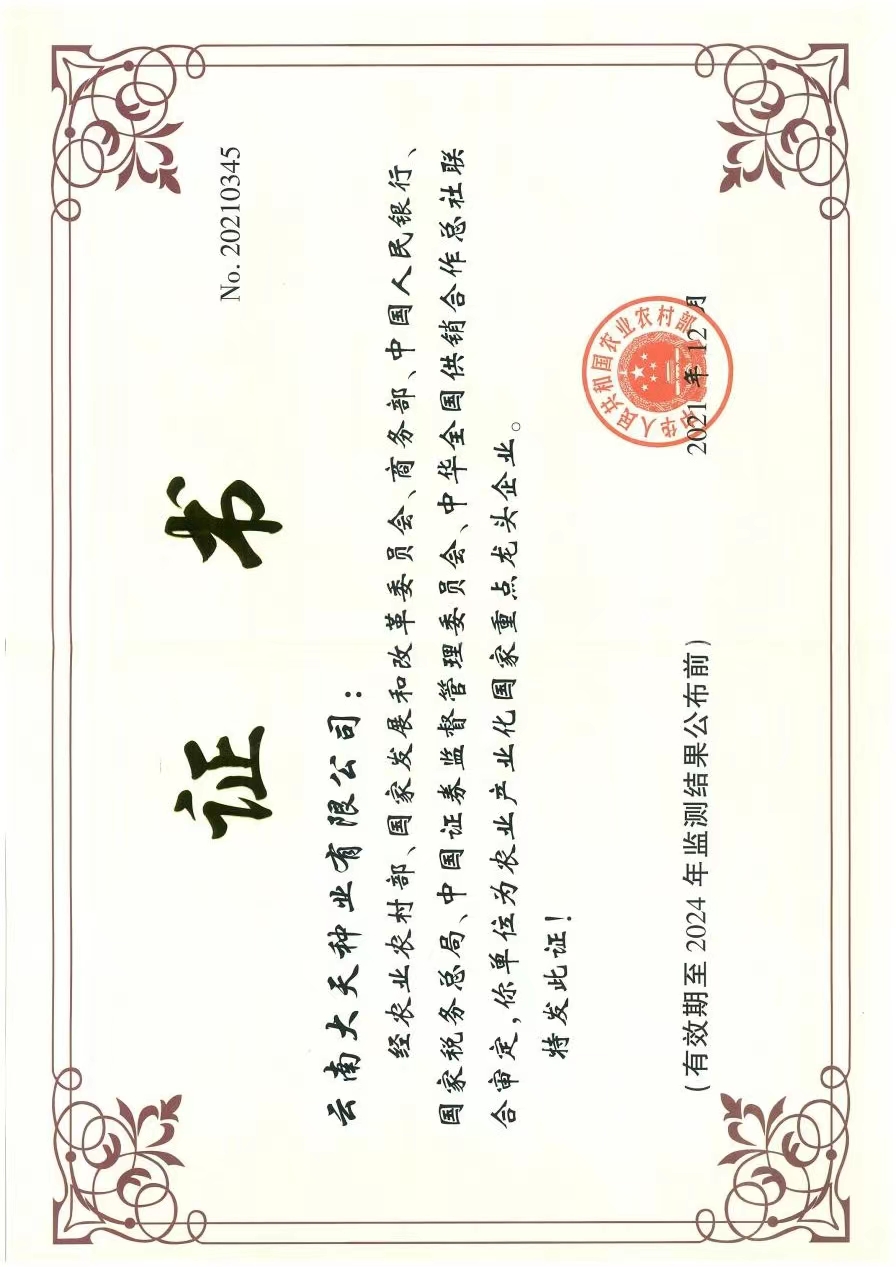 No. 20210345
证 书
云南大天种业有限公司：
经农业农村部、国家发展和改革委员会、商务部、中国人民银行、
国家税务总局、中国证券监督管理委员会、中华全国供销合作总社联
合审定，你单位为农业产业化国家重点龙头企业。
特发此证！
中华人民共和国农业农村部
2021 年 12 月
（有效期至 2024 年监测结果公布前）